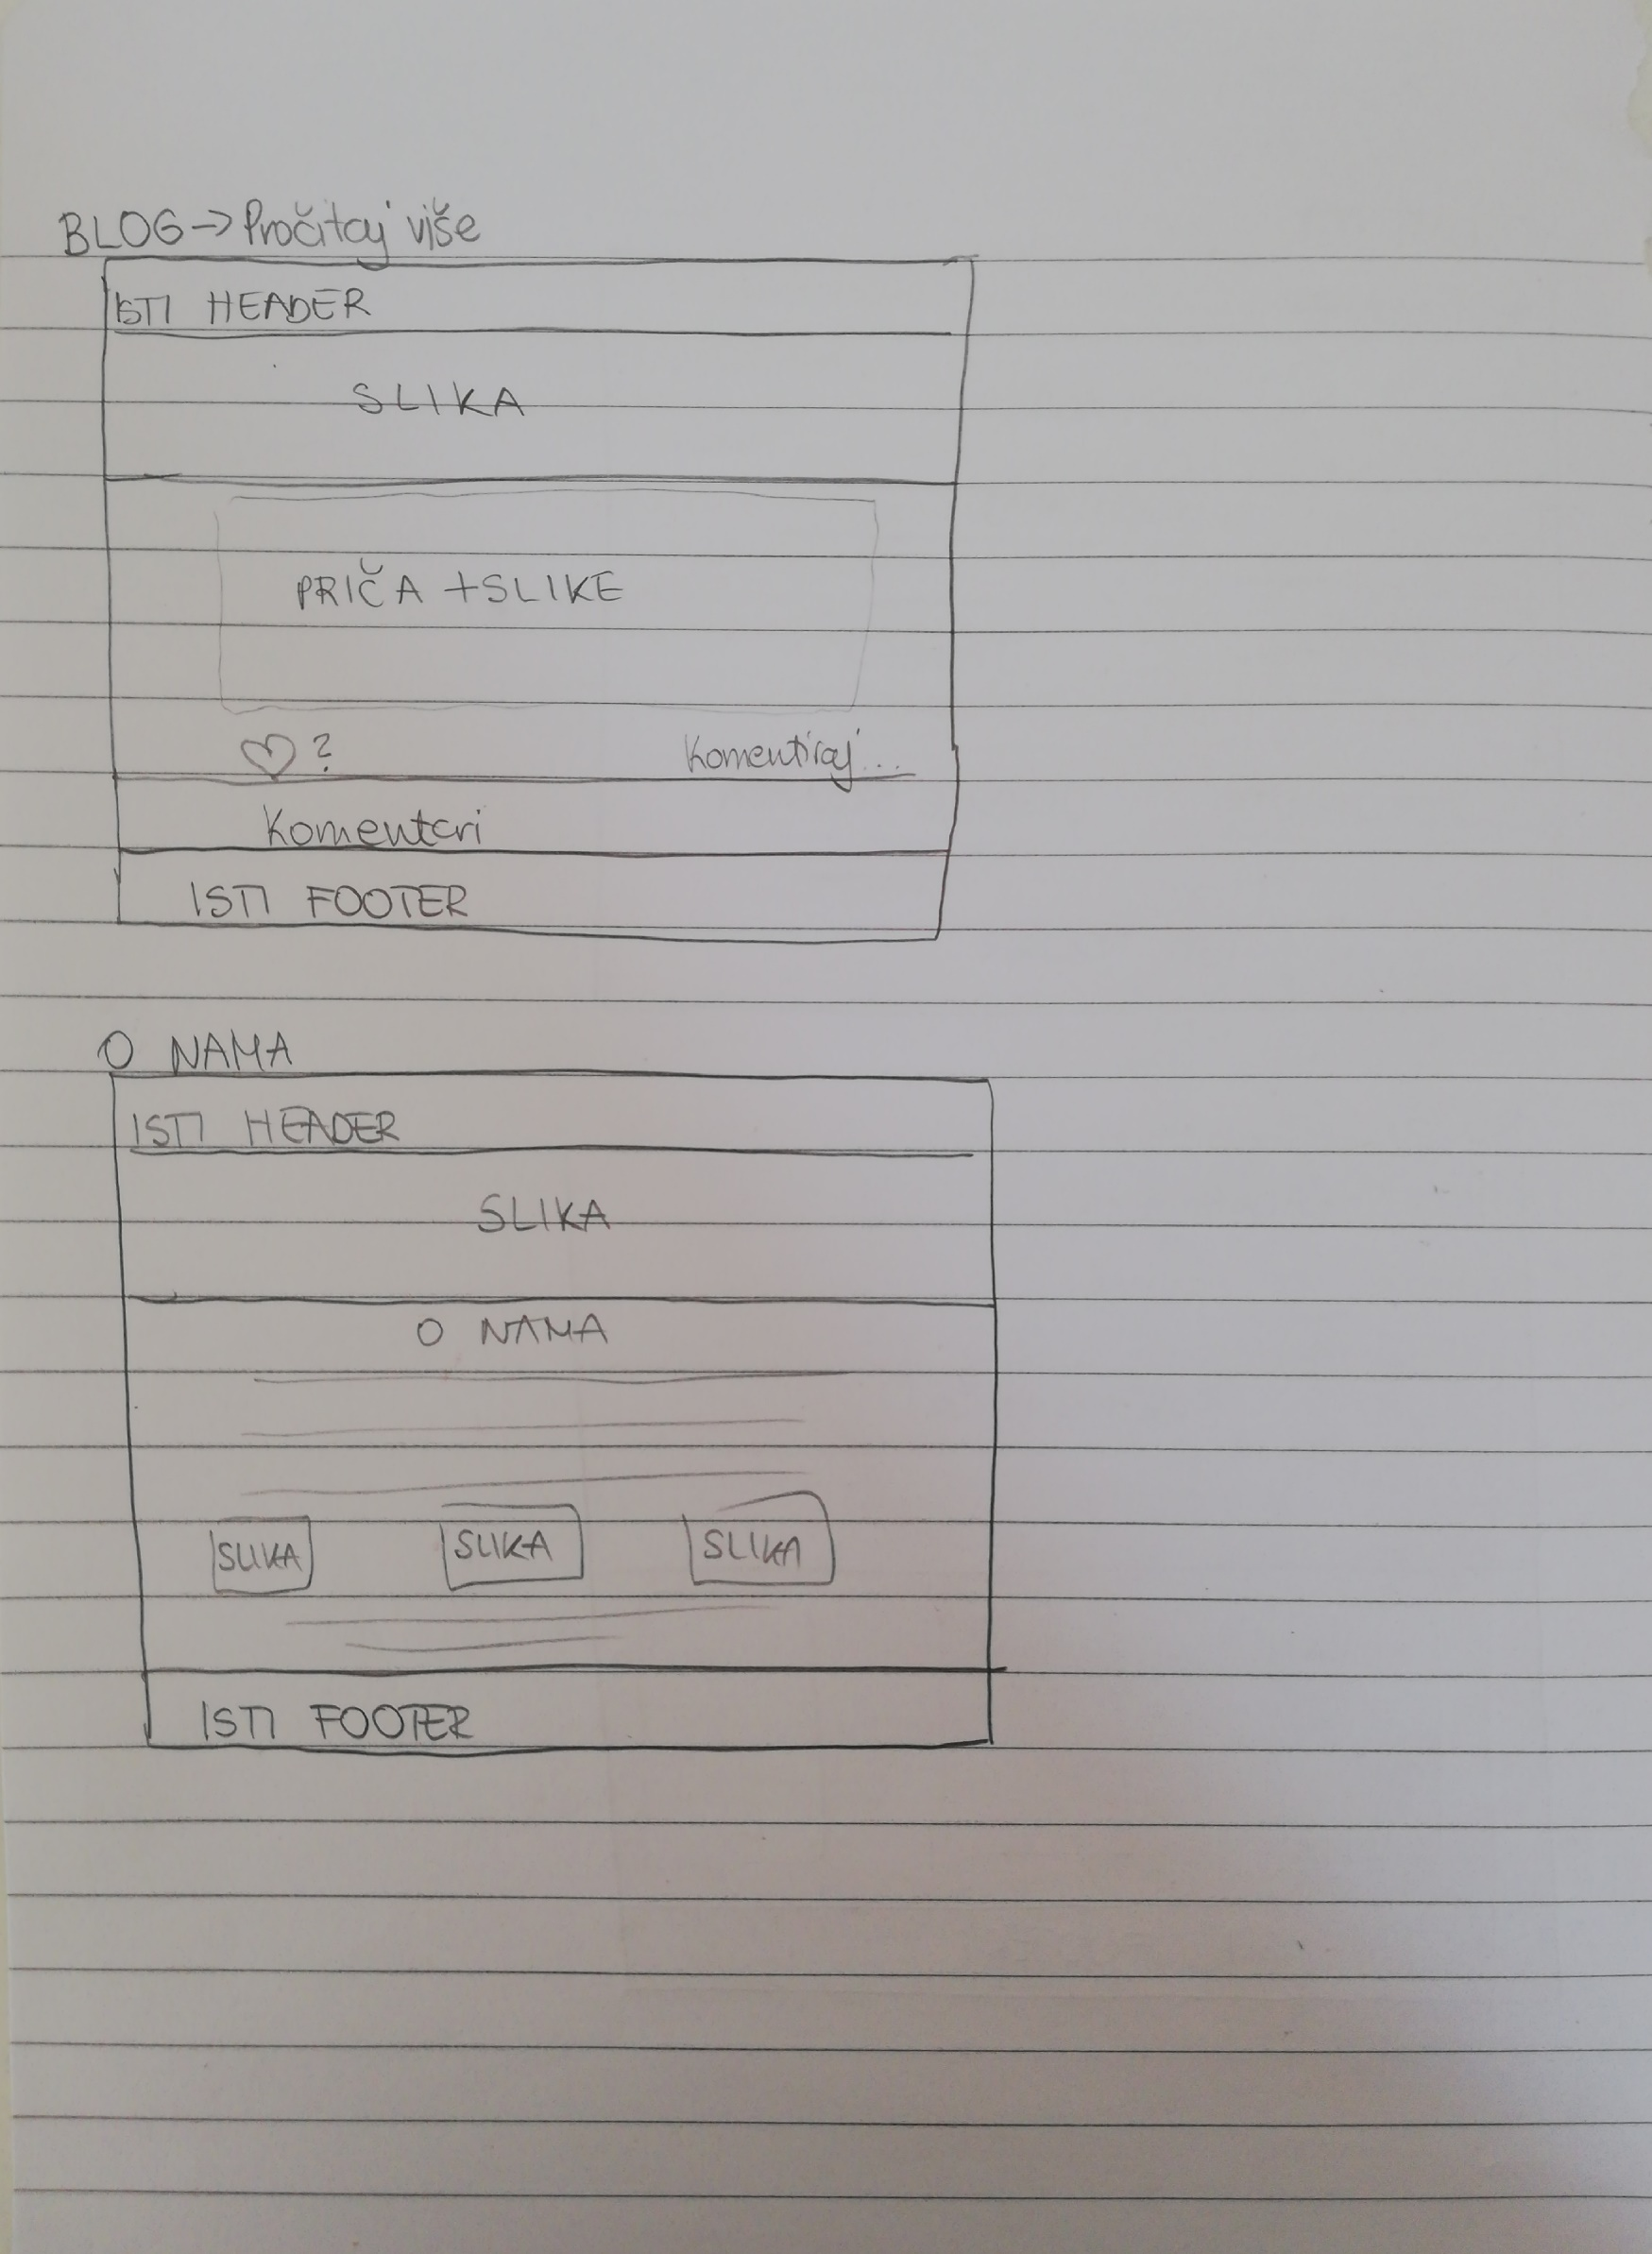 BLOG → Pročitaj više
ISTI HEADER
SLIKA
PRIČA + SLIKE
♡ ? Komentiraj...
Komentari
ISTI FOOTER
O NAMA
ISTI HEADER
SLIKA
O NAMA
SLIKA SLIKA SLIKA
ISTI FOOTER